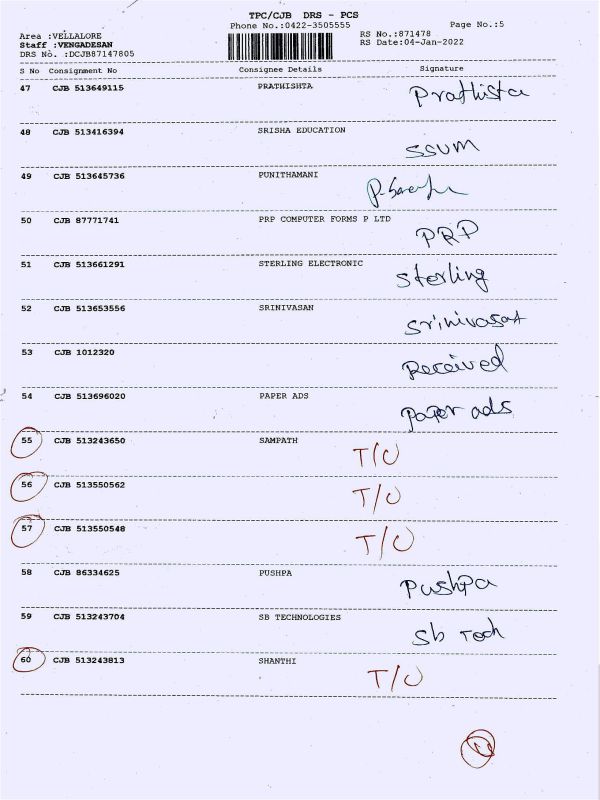 TPC/CJB DRS - PCS
Phone No.:0422-3505555
Page No.:5
Area :VELLALORE
Staff :VENGADESAN
DRS No. :DCJB87147805
RS No.:871478
RS Date:04-Jan-2022
S No Consignment No Consignee Details Signature
47 CJB 513649115 PRATHISHTA Prathista
48 CJB 513416394 SRISHA EDUCATION SSVM
49 CJB 513645736 PUNITHAMANI
50 CJB 87771741 PRP COMPUTER FORMS P LTD PRP
51 CJB 513661291 STERLING ELECTRONIC Sterling
52 CJB 513653556 SRINIVASAN Srinivasan
53 CJB 1012320 Received
54 CJB 513696020 PAPER ADS paper ads
55 CJB 513243650 SAMPATH T/O
56 CJB 513550562 T/O
57 CJB 513550548 T/O
58 CJB 86334625 PUSHPA Pushpa
59 CJB 513243704 SB TECHNOLOGIES Sb Tech
60 CJB 513243813 SHANTHI T/O